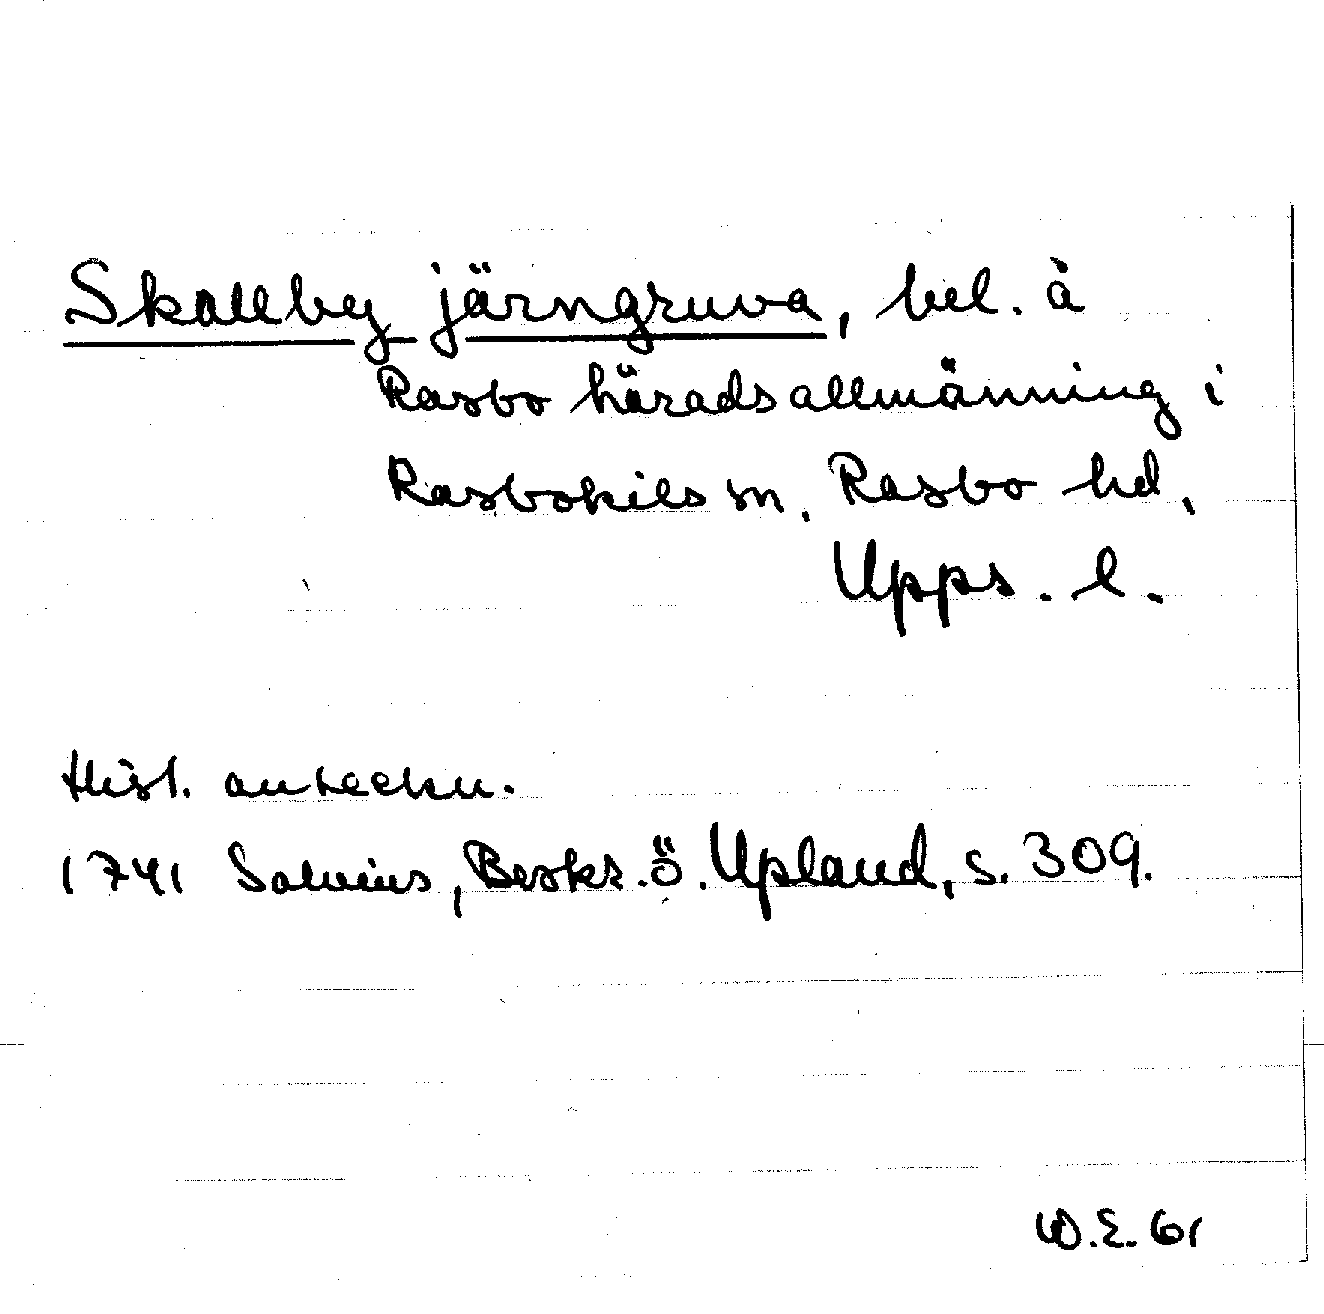 Skallby järngruva, bel. å
Rasbo häradsallmänning i
Rasbokils sn, Rasbo hd,
Upps. l.
Hist. anteckn.
1741 Salvius, Beskr. ö. Upland, s. 309.
W.E. 61